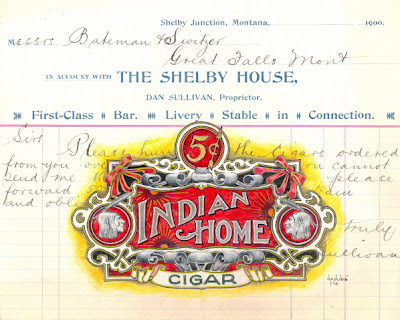 Shelby Junction, Montana, 1900.
MESSRS Bateman & Switzer
Great Falls Mont
IN ACCOUNT WITH THE SHELBY HOUSE,
DAN SULLIVAN, Proprietor.
First-Class Bar. Livery Stable in Connection.
Sir Please the Cigars ordered
from you cannot
send me please
forward
and truly
Sullivan
5¢
INDIAN
HOME
CIGAR